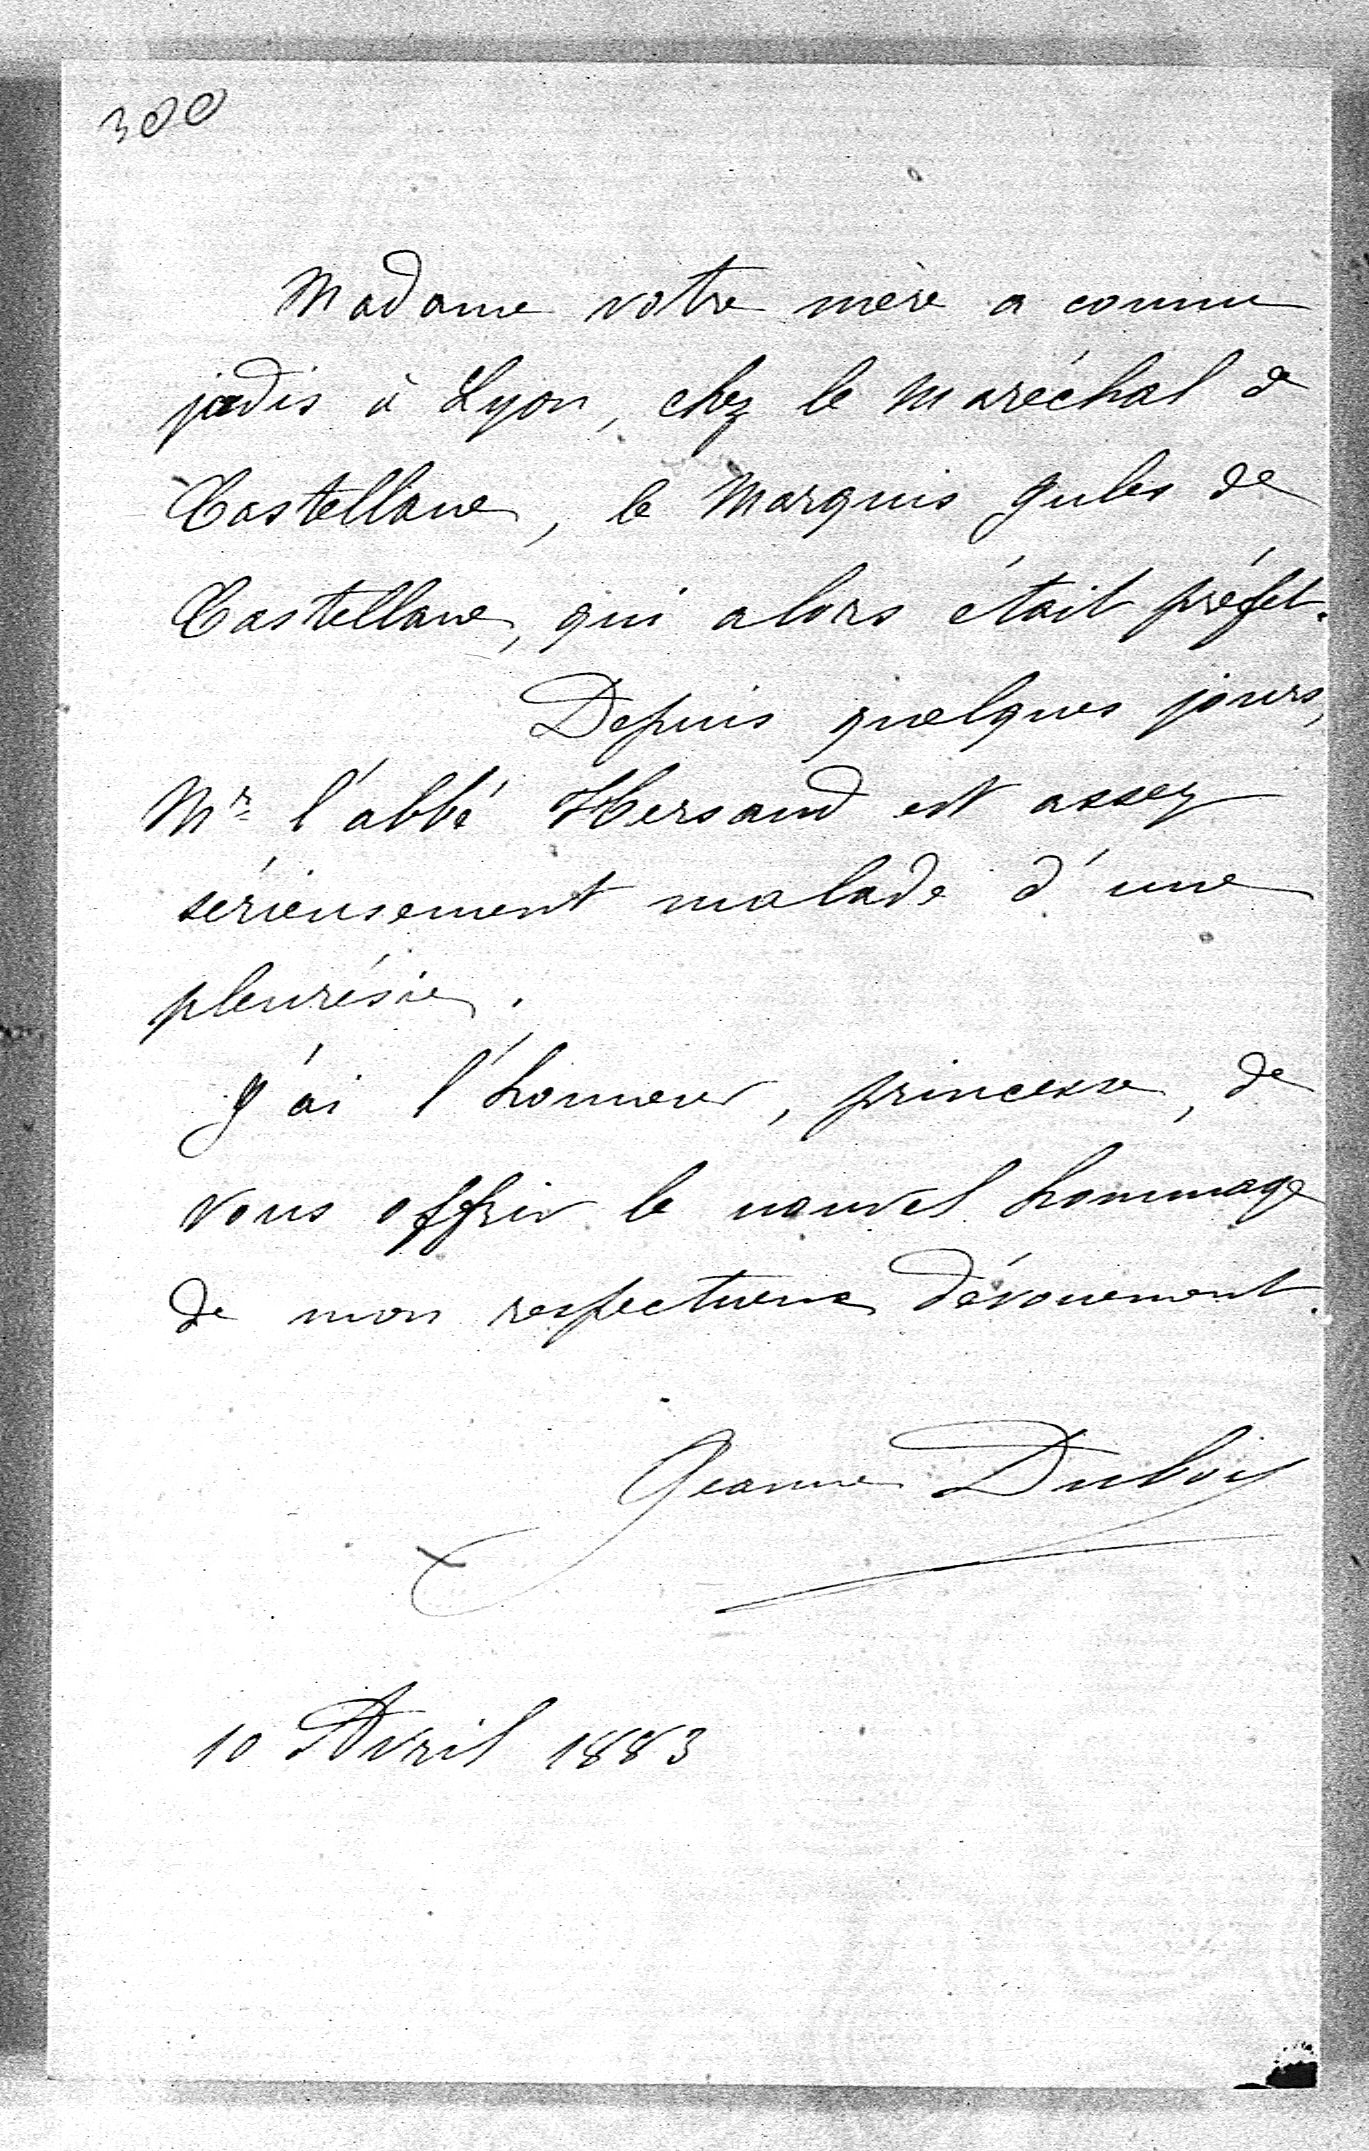 300
Madame votre mère a connu
jadis à Lyon, chez le Maréchal de
Castellane, le Marquis Jules de
Castellane, qui alors était préfet.
Depuis quelques jours,
Mr l'abbé Hersand est assez
sérieusement malade d'une
pleurésie.
J'ai l'honneur, princesse, de
vous offrir le nouvel hommage
de mon respectueux dévouement.
Jeanne Dubois
10 Avril 1883